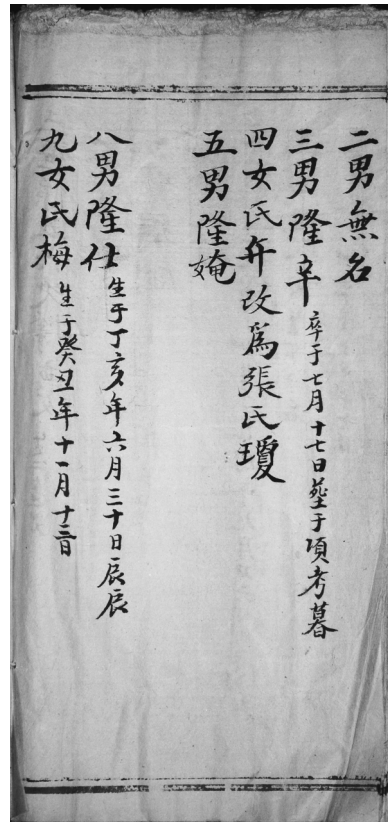 二男無名
三男隆辛 卒于七月十七日塟于項考墓
四女氏弁改爲張氏瓊
五男隆媕
八男隆仕 生于丁亥年六月三十日辰辰
九女氏梅 生于癸丑年十一月十三日